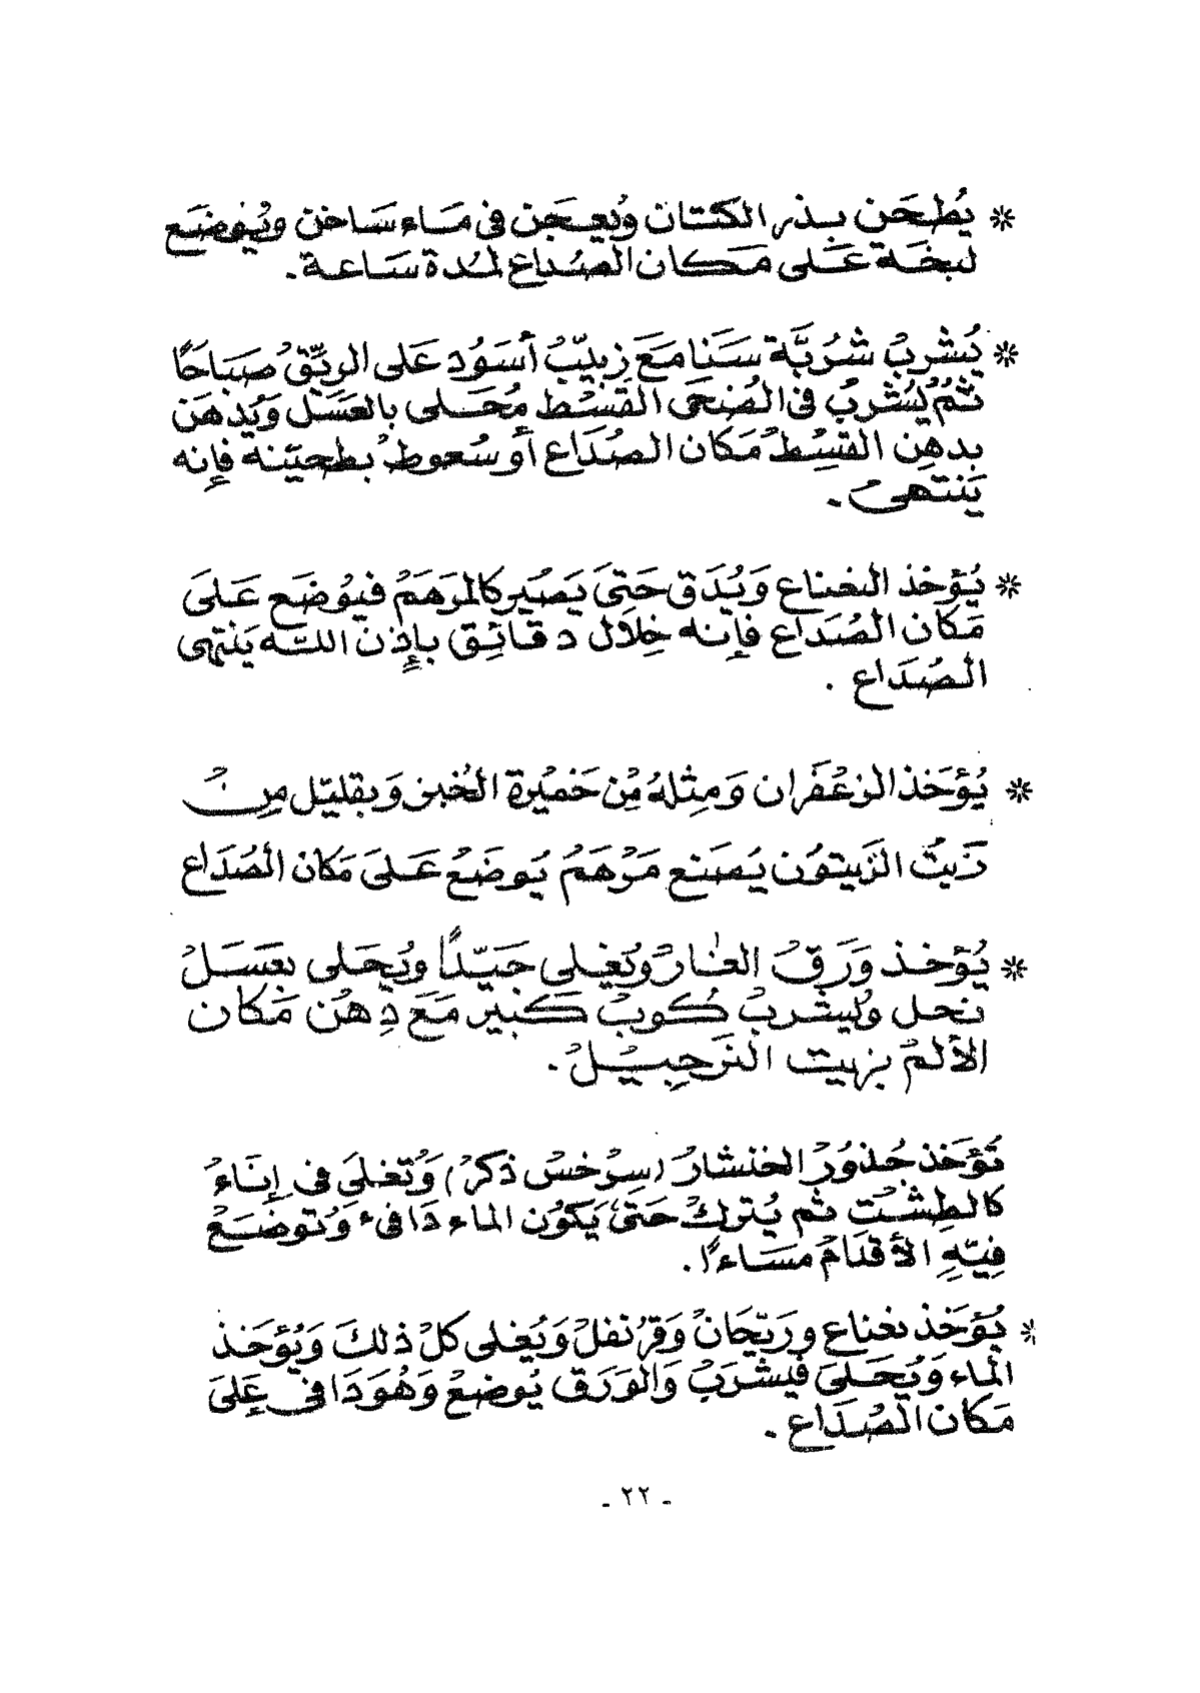 * يُطحَن بذر الكتان ويُعجَن فى مَاء سَاخن ويُوضَع
لبخَة عَلى مَكان الصُداع لمُدة سَاعة .
* يُشربُ شرُبَّة سَنَا مَعَ زبيّبُ أسَوُد عَلى الريِّقُ صَبَاحًا
ثمُ يُشربُ فى الضُحَى القسْط مُحَلى بالعسَل وَيُدهَن
بدهِن القسْط مَكان الصُدَاع أو سُعوط بطحيّنه فإنه
يَنتهىُ .
* يُؤخذ النعناع وَيُدَق حَتىَ يَصُير كالمرَهَمُ فيُوضَع عَلىَ
مَكان الصُدَاع فإنه خِلال دقائِق بإِذن اللّه يَنتهى
الصُدَاع .
* يُؤخَذ الزعْفَران وَمِثلهُ مِّن خَمُيرة الُخبز وَبقليّل مِنُ
زَيتُ الزَيتوُن يُصَنع مَرُهَمُ يُوضَعُ عَلىَ مَكان الصُدَاع
* يُؤخذ وَرَقُ الغارُ ويُغلى جَيّدًا ويُحَلى بعَسَلُ
نحل ويُشربُ كُوبُ كَبير مَعَ دِهُن مَكان
الألمُ بزيت النرَجِيلُ .
تُؤخَذ جُذوُرُ الخنشارُ (سِرُخسُ ذكرُ) وَتُغلىَ فى إنَاءُ
كالطِشتُ ثم يُتركُ حَتىَ يَكوُن الماء دَافىء وَتوضَعُ
فِيّهِ الأقدَامُ مسَاءًا .
* يُؤخَذ نعناع ورَيّحَانُ وَقرُنفلُ وَيُغلى كلُ ذلكَ وَيُؤخَذ
الماء وَيُحَلىَ فيشرَبُ وَالوَرَق يُوضعُ وَهُوَ دَافى عَلىَ
مَكان الصُدَاع .
- ٢٢ -